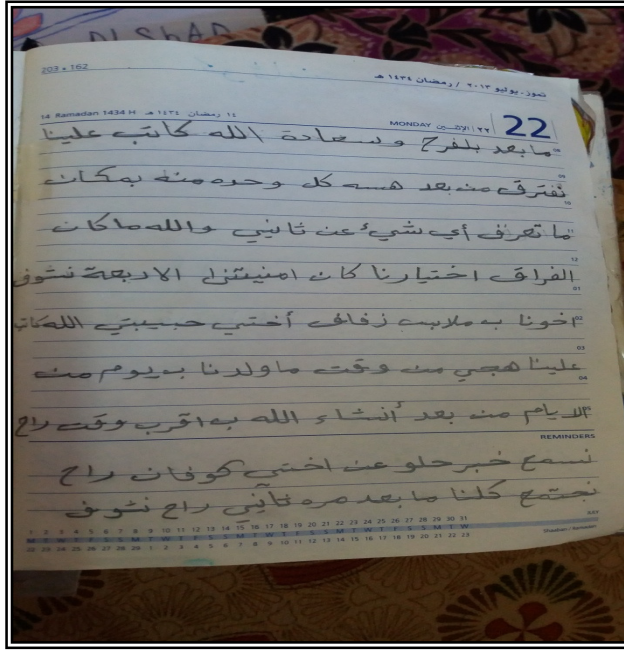 DLSHAD
203 • 162
تموز - يوليو ٢٠١٣ / رمضان ١٤٣٤ هـ
14 Ramadan 1434 H ١٤ رمضان ١٤٣٤ هـ MONDAY الإثنين ٢٢ 22
مابعد بلفرح وسعادة الله كاتب علينا
09
نفترق من بعد هسه كل وحده منه بمكان
10
ما تعرف أي شيء عن ثانيي والله ماكان
11
12
الفراق اختيارنا كان امنيتنا الاربعة نشوف
01
اخونا ب ملابس زفاف أختي حبيبتي الله كاتب
02
03
علينا هجي من وقت ماولدنا ب يوم من
04
الايام من بعد أنشاء الله ب اقرب وقت راح
REMINDERS
نسمع خبر حلو عن اختي كوفان راح
نجتمع كلنا مابعد مره ثانيي راح نشوف
JULY
1 2 3 4 5 6 7 8 9 10 11 12 13 14 15 16 17 18 19 20 21 22 23 24 25 26 27 28 29 30 31
M T W T F S S M T W T F S S M T W T F S S M T W T F S S M T W
22 23 24 25 26 27 28 29 1 2 3 4 5 6 7 8 9 10 11 12 13 14 15 16 17 18 19 20 21 22 23
Shaaban / Ramadan